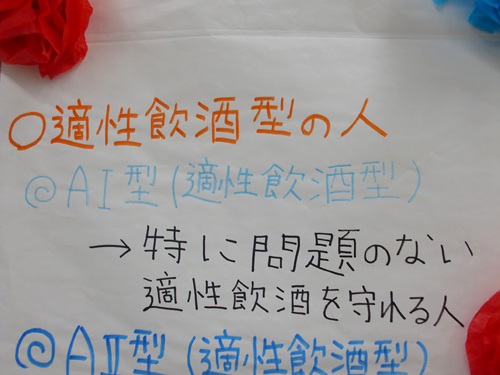 ○適性飲酒型の人
@AI型(適性飲酒型)
→特に問題のない
適性飲酒を守れる人
@AII型(適性飲酒型)